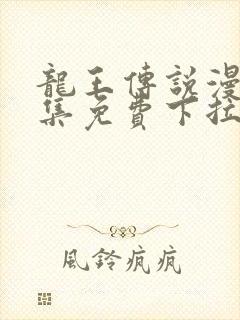 龍王傳說漫
集免費下拉
風鈴疯疯